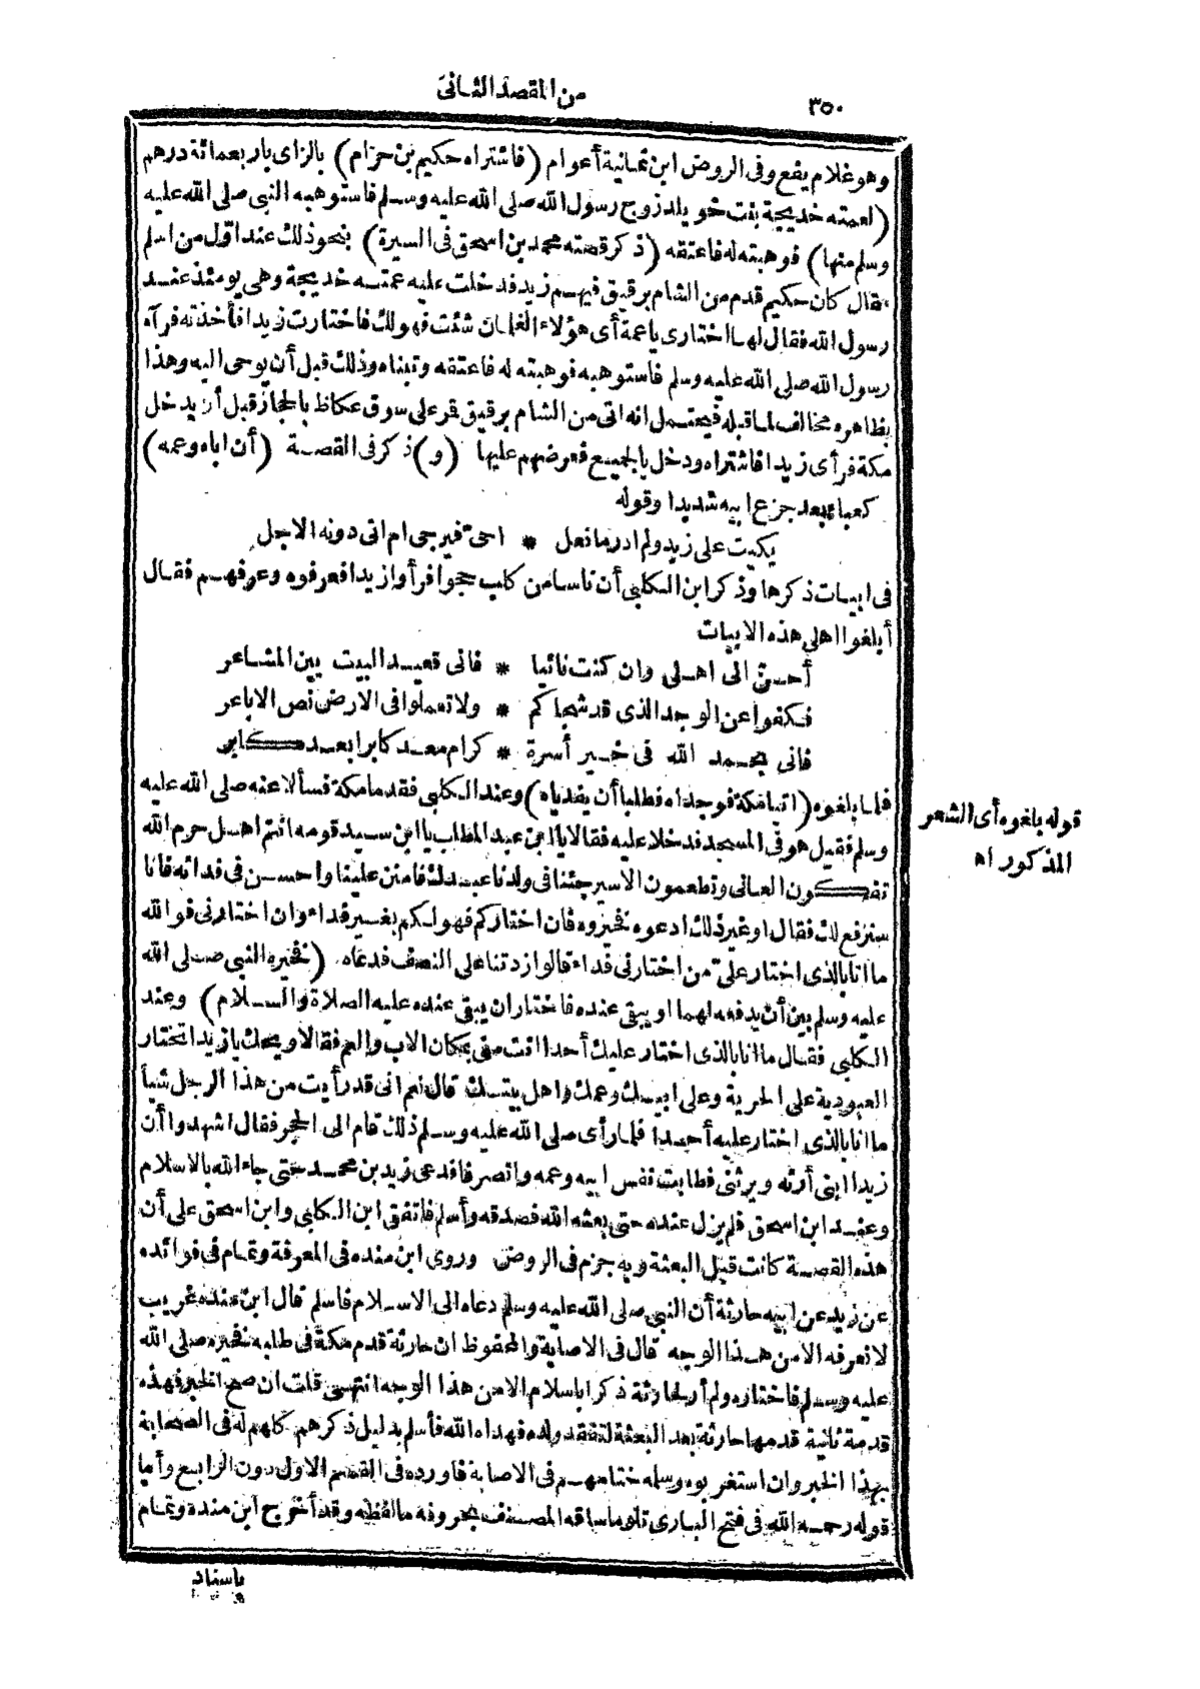 ٣٥٠
من المقصد الثانى
وهو غلام يفع وفى الروض ابن ثمانية أعوام (فاشتراه حكيم بن حزام) بالزاى بار بعمائة درهم
(لعمته خديجة بنت خويلد زوج رسول الله صلى الله عليه وسلم فاستوهبه النبى صلى الله عليه
وسلم منها) فوهبته له فاعتقه (ذكر قصته محمد بن اسحق فى السيرة) بنحو ذلك عند اوّل من اسلم
فقال كان حكيم قدم من الشام برقيق فيهم زيد فدخلت عليه عمته خديجة وهى يومئذ عند
رسول الله فقال لها اختارى يا عمة أى هؤلاء الغلمان شئت فهو لك فاختارت زيدا فأخذته فرآه
رسول الله صلى الله عليه وسلم فاستوهبه فوهبته له فاعتقه وتبناه وذلك قبل أن يوحى اليه وهذا
بظاهره مخالف لما قبله فيحتمل انه اتى من الشام برقيق فمر على سوق عكاظ بالحجاز قبل أن يدخل
مكة فرأى زيدا فاشتراه ودخل بالجميع فعرضهم عليها (و) ذكر فى القصة (أن اباه وعمه)
كعبا بعد جزع ابيه شديدا وقوله
بكيت على زيد ولم ادر ما فعل * احىّ فيرجى ام اتى دونه الاجل
فى ابيات ذكرها وذكر ابن الكلبى أن ناسا من كلب حجوا فرأوا زيدا فعرفوه وعرفهم فقال
أبلغوا اهلى هذه الابيات
أحنّ الى اهلى وان كنت نائيا * فانى قعيد البيت بين المشاعر
فكفوا عن الوجد الذى قد شجاكم * ولا تعملوا فى الارض نص الاباعر
فانى بحمد الله فى خير أسرة * كرام معد كابرا بعد كابر
فلما بلغوه (اتيا مكة فوجداه فطلبا أن يفدياه) وعند الكلبى فقدما مكة فسألا عنه صلى الله عليه
وسلم فقيل هو فى المسجد فدخلا عليه فقالا يا ابن عبد المطلب يا ابن سيد قومه انتم اهل حرم الله
تفكون العانى وتطعمون الاسير جئنا فى ولدنا عبدك فامنن علينا واحسن فى فدائه فانا
سنرفع لك فقال او غير ذلك ادعوه فخيروه فان اختاركم فهو لكم بغير فداء وان اختارنى فوالله
ما انا بالذى اختار علىّ من اختارنى فداء قالوا زدتنا على النصف فدعاه (فخيره النبى صلى الله
عليه وسلم بين أن يدفعه لهما او يبقى عنده فاختار ان يبقى عنده عليه الصلاة والسلام) وعند
الكلبى فقال ما انا بالذى اختار عليك أحدا انت منى بمكان الاب والعم فقالا ويحك يا زيد اتختار
العبودية على الحرية وعلى ابيك وعمك واهل بيتك قال نعم انى قد رأيت من هذا الرجل شيأ
ما انا بالذى اختار عليه أحدا فلما رأى صلى الله عليه وسلم ذلك قام الى الحجر فقال اشهدوا أن
زيدا ابنى أرثه ويرثنى فطابت نفس ابيه وعمه وانصرفا فدعى زيد بن محمد حتى جاء الله بالاسلام
وعند ابن اسحق فلم يزل عنده حتى بعثه الله فصدقه وأسلم فاتفق ابن الكلبى وابن اسحق على أن
هذه القصة كانت قبل البعثة وبه جزم فى الروض وروى ابن منده فى المعرفة وتمام فى فوائده
عن زيد عن ابيه حارثة أن النبى صلى الله عليه وسلم دعاه الى الاسلام فاسلم قال ابن منده غريب
لا نعرفه الا من هذا الوجه قال فى الاصابة والمحفوظ ان حارثة قدم مكة فى طلبه فخيره صلى الله
عليه وسلم فاختاره ولم أر لحارثة ذكرا باسلام الا من هذا الوجه انتهى قلت ان صح الخبر فهذه
قدمة ثانية قدمها حارثة بعد البعثة لتفقد ولده فهداه الله فأسلم بدليل ذكرهم كلهم له فى الصحابة
بهذا الخبر وان استغربوه وسلمه ختامهم فى الاصابة فاورده فى القسم الاول دون الرابع وأما
قوله رحمه الله فى فتح البارى تلو ما ساقه المصنف بحروفه ما لفظه وقد أخرج ابن منده وتمام
باسناد
قوله بلغوه أى الشعر
المذكور اه